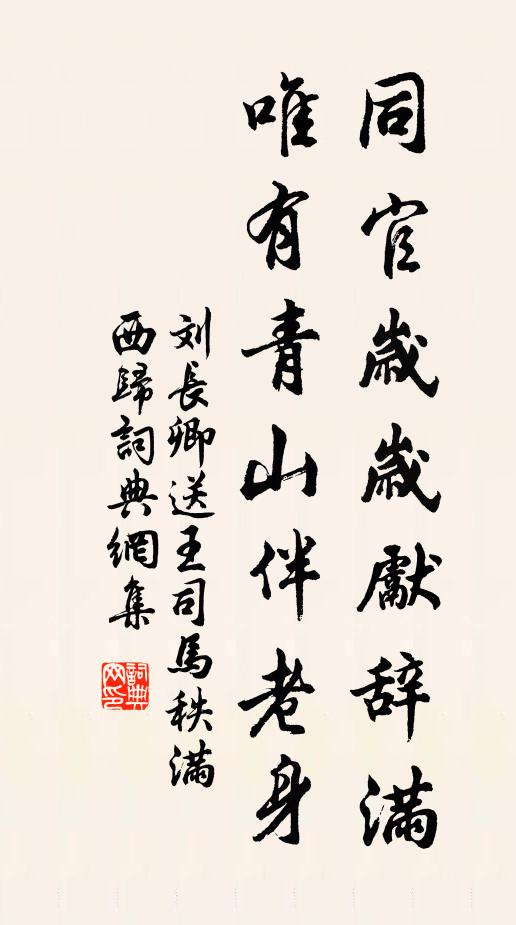 同官歲歲獻辞滿
唯有青山伴老身
刘長卿送王司馬秩滿
西歸詞典網集
詞典网印